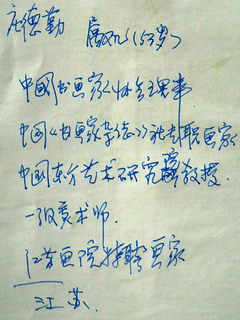 德勤 (53岁)
中國书画家协会理事
中国《书画家杂志》社专职画家
中国东方艺术研究院教授.
一级美术师.
江苏画院特聘画家
江苏.